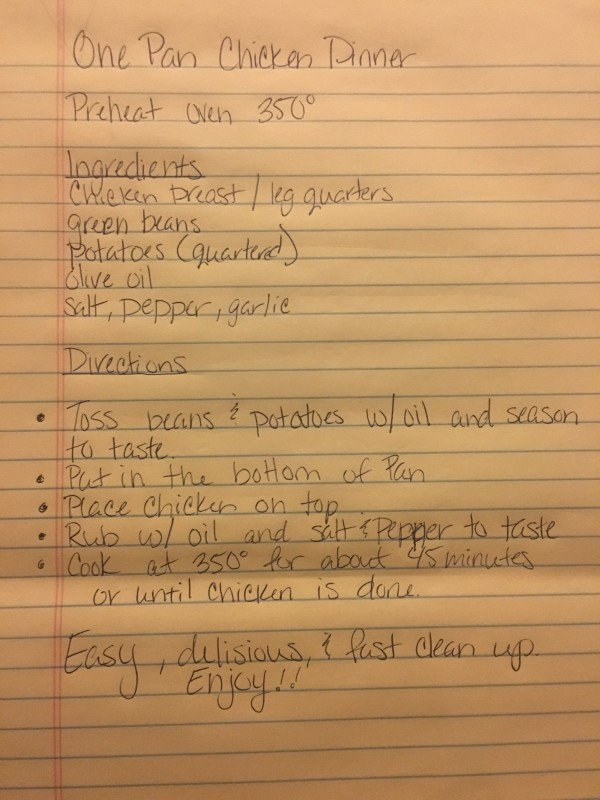 One Pan Chicken Dinner
Preheat oven 350°
Ingredients
Chicken breast / leg quarters
green beans
potatoes (quartered)
olive oil
salt, pepper, garlic
Directions
• Toss beans & potatoes w/ oil and season
to taste.
• Put in the bottom of Pan
• Place Chicken on top.
• Rub w/ oil and salt & Pepper to taste
• Cook at 350° for about 45 minutes
or until chicken is done.
Easy, delisious, & fast clean up.
Enjoy!!